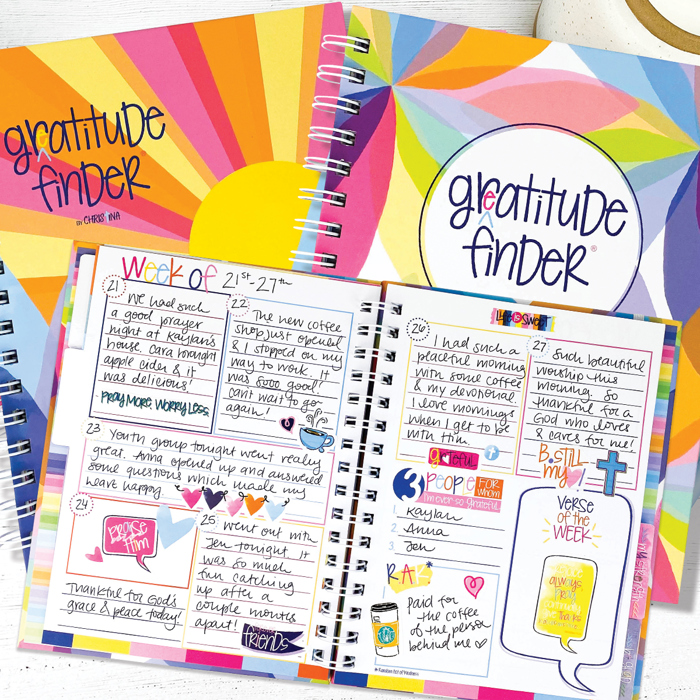 gratitude
e
finder
BY CHRISTINA
gratitude
e
finder®
Week of 21st-27th
21
We had such
a good prayer
night at Kaylan's
house. Cara brought
apple cider & it
was delicious!
PRAY MORE, WORRY LESS
22
The new coffee
shop just opened
& I stopped on my
way to work. It
was sooo good!
Can't wait to go
again!
23 Youth group tonight went really
great. Anna opened up and answered
some questions which made my
heart happy.
24
Praise
Him
Thankful for God's
grace & peace today!
25
Went out with
Jen tonight. It
was so much
fun catching
up after a
couple months
apart!
friends
Life is Sweet
26
I had such a
peaceful morning
with some coffee
& my devotional.
I love mornings
when I get to be
with Him.
grateful
27
Such beautiful
worship this
morning. So
thankful for a
God who loves
& cares for me!
B. STILL
my
3 PEOPLE FOR
whom
I'm ever so grateful
1 Kaylan
2 Anna
3 Jen
RAK*
Paid for
the coffee
of the person
behind me
* Random Act of Kindness
VERSE
OF THE
WEEK
always